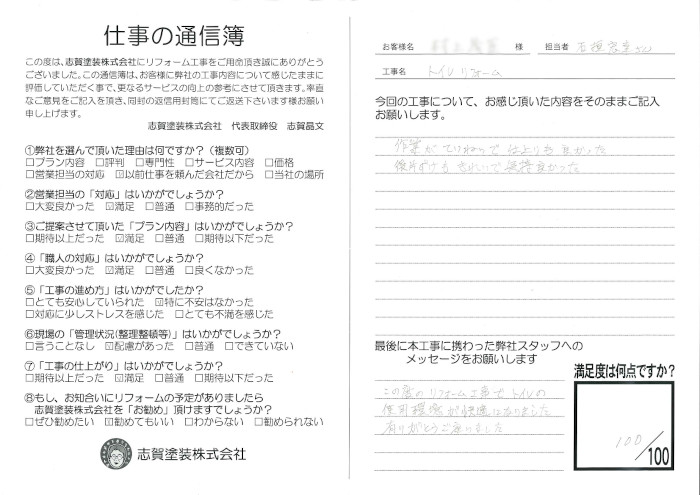 仕事の通信簿
この度は、志賀塗装株式会社にリフォーム工事をご用命頂き誠にありがとう
ございました。この通信簿は、お客様に弊社の工事内容について感じたままに
評価していただく事で、更なるサービスの向上の参考にさせて頂きます。率直
なご意見をご記入を頂き、同封の返信用封筒にてご返送下さいます様お願い
申し上げます。
志賀塗装株式会社 代表取締役 志賀晶文
①弊社を選んで頂いた理由は何ですか?(複数可)
□プラン内容 □評判 □専門性 □サービス内容 □価格
□営業担当の対応 ☑以前仕事を頼んだ会社だから □当社の場所
②営業担当の「対応」はいかがでしょうか?
□大変良かった ☑満足 □普通 □事務的だった
③ご提案させて頂いた「プラン内容」はいかがでしょうか?
□期待以上だった ☑満足 □普通 □期待以下だった
④「職人の対応」はいかがでしょうか?
□大変良かった ☑満足 □普通 □良くなかった
⑤「工事の進め方」はいかがでしたか?
□とても安心していられた ☑特に不安はなかった
□対応に少しストレスを感じた □とても不満を感じた
⑥現場の「管理状況(整理整頓等)」はいかがでしょうか?
□言うことなし ☑配慮があった □普通 □できていない
⑦「工事の仕上がり」はいかがでしょうか?
□期待以上だった ☑満足 □普通 □期待以下だった
⑧もし、お知合いにリフォームの予定がありましたら
志賀塗装株式会社を「お勧め」頂けますでしょうか?
□ぜひ勧めたい ☑勧めてもいい □わからない □勧められない
志賀塗装株式会社
お客様名 様 担当者
工事名 トイレリフォーム
今回の工事について、お感じ頂いた内容をそのままご記入
お願いします。
作業がていねいで仕上りも良かった
後片ずけもきれいで気持良かった
最後に本工事に携わった弊社スタッフへの
メッセージをお願いします
この度のリフォーム工事でトイレの
使用環境が快適になりました
有りがとうご座りました
満足度は何点ですか?
100/100